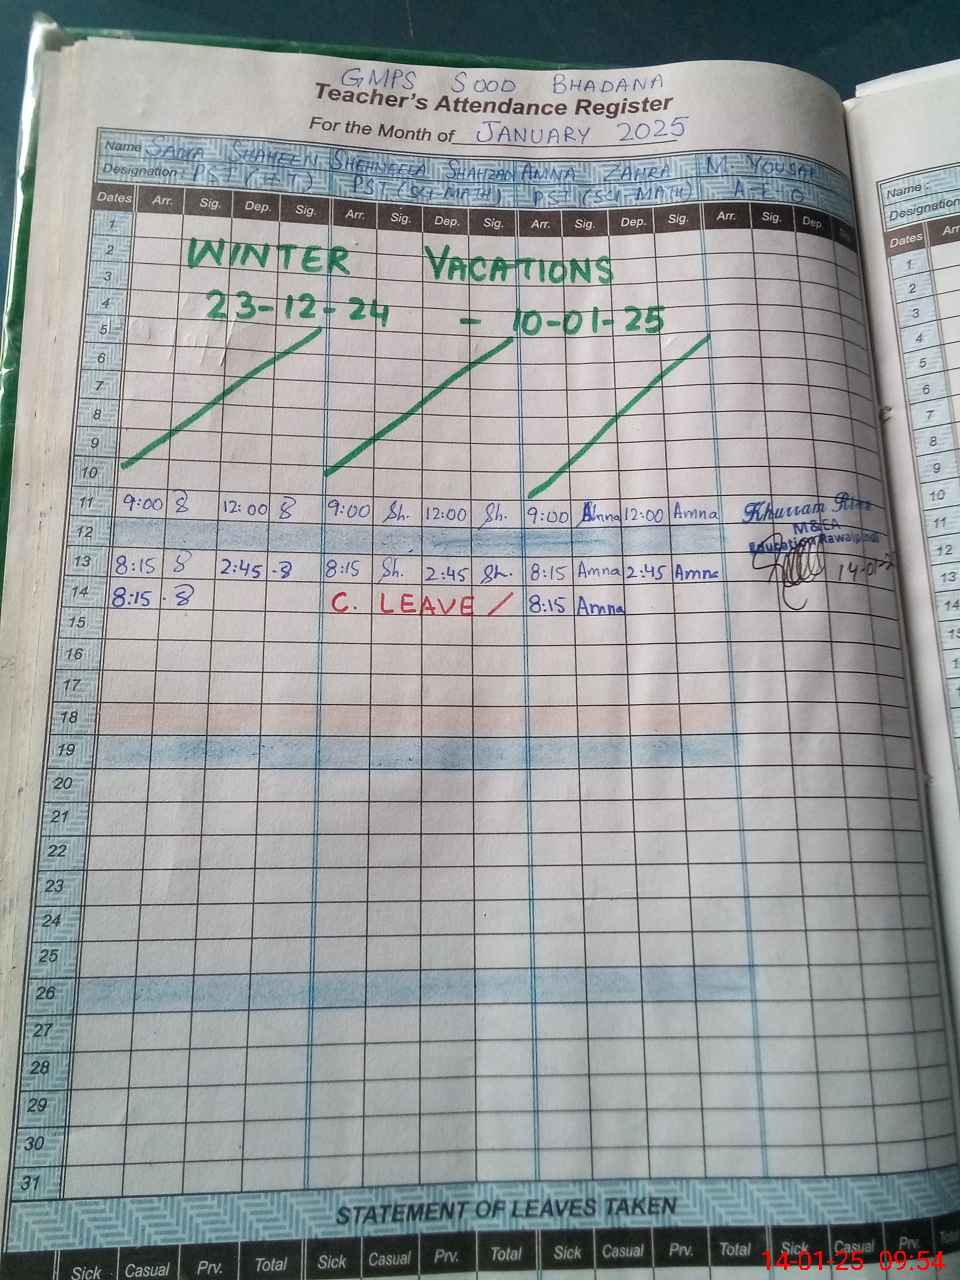 GMPS SOOD BHADANA
Teacher's Attendance Register
For the Month of JANUARY 2025
Name SADIA SHAHEEN SHEHNEELA SHAHZAD AMNA ZAHRA M. YOUSAF
Designation: PST (HT) PST (SCI-MATH) PST (SCI-MATH)
Dates Arr. Sig. Dep. Sig. Arr. Sig. Dep. Sig. Arr. Sig. Dep. Sig. Arr. Sig. Dep.
1
2 WINTER VACATIONS
3
4 23-12-24 - 10-01-25
5
6
7
8
9
10
11 9:00 8 12:00 8 9:00 Sh. 12:00 Sh. 9:00 Amna 12:00 Amna Khurram
12 M&EA
Education Rawalpindi
13 8:15 8 2:45 8 8:15 Sh. 2:45 Sh. 8:15 Amna 2:45 Amna
14 8:15 8 C. LEAVE / 8:15 Amna
15
16
17
18
19
20
21
22
23
24
25
26
27
28
29
30
31
STATEMENT OF LEAVES TAKEN
Sick Casual Prv. Total Sick Casual Prv. Total Sick Casual Prv. Total Sick Casual Prv.
Name:
Designation
Dates Arr
1
2
3
4
5
6
7
8
9
10
11
12
13
14
14-01-25 09:54